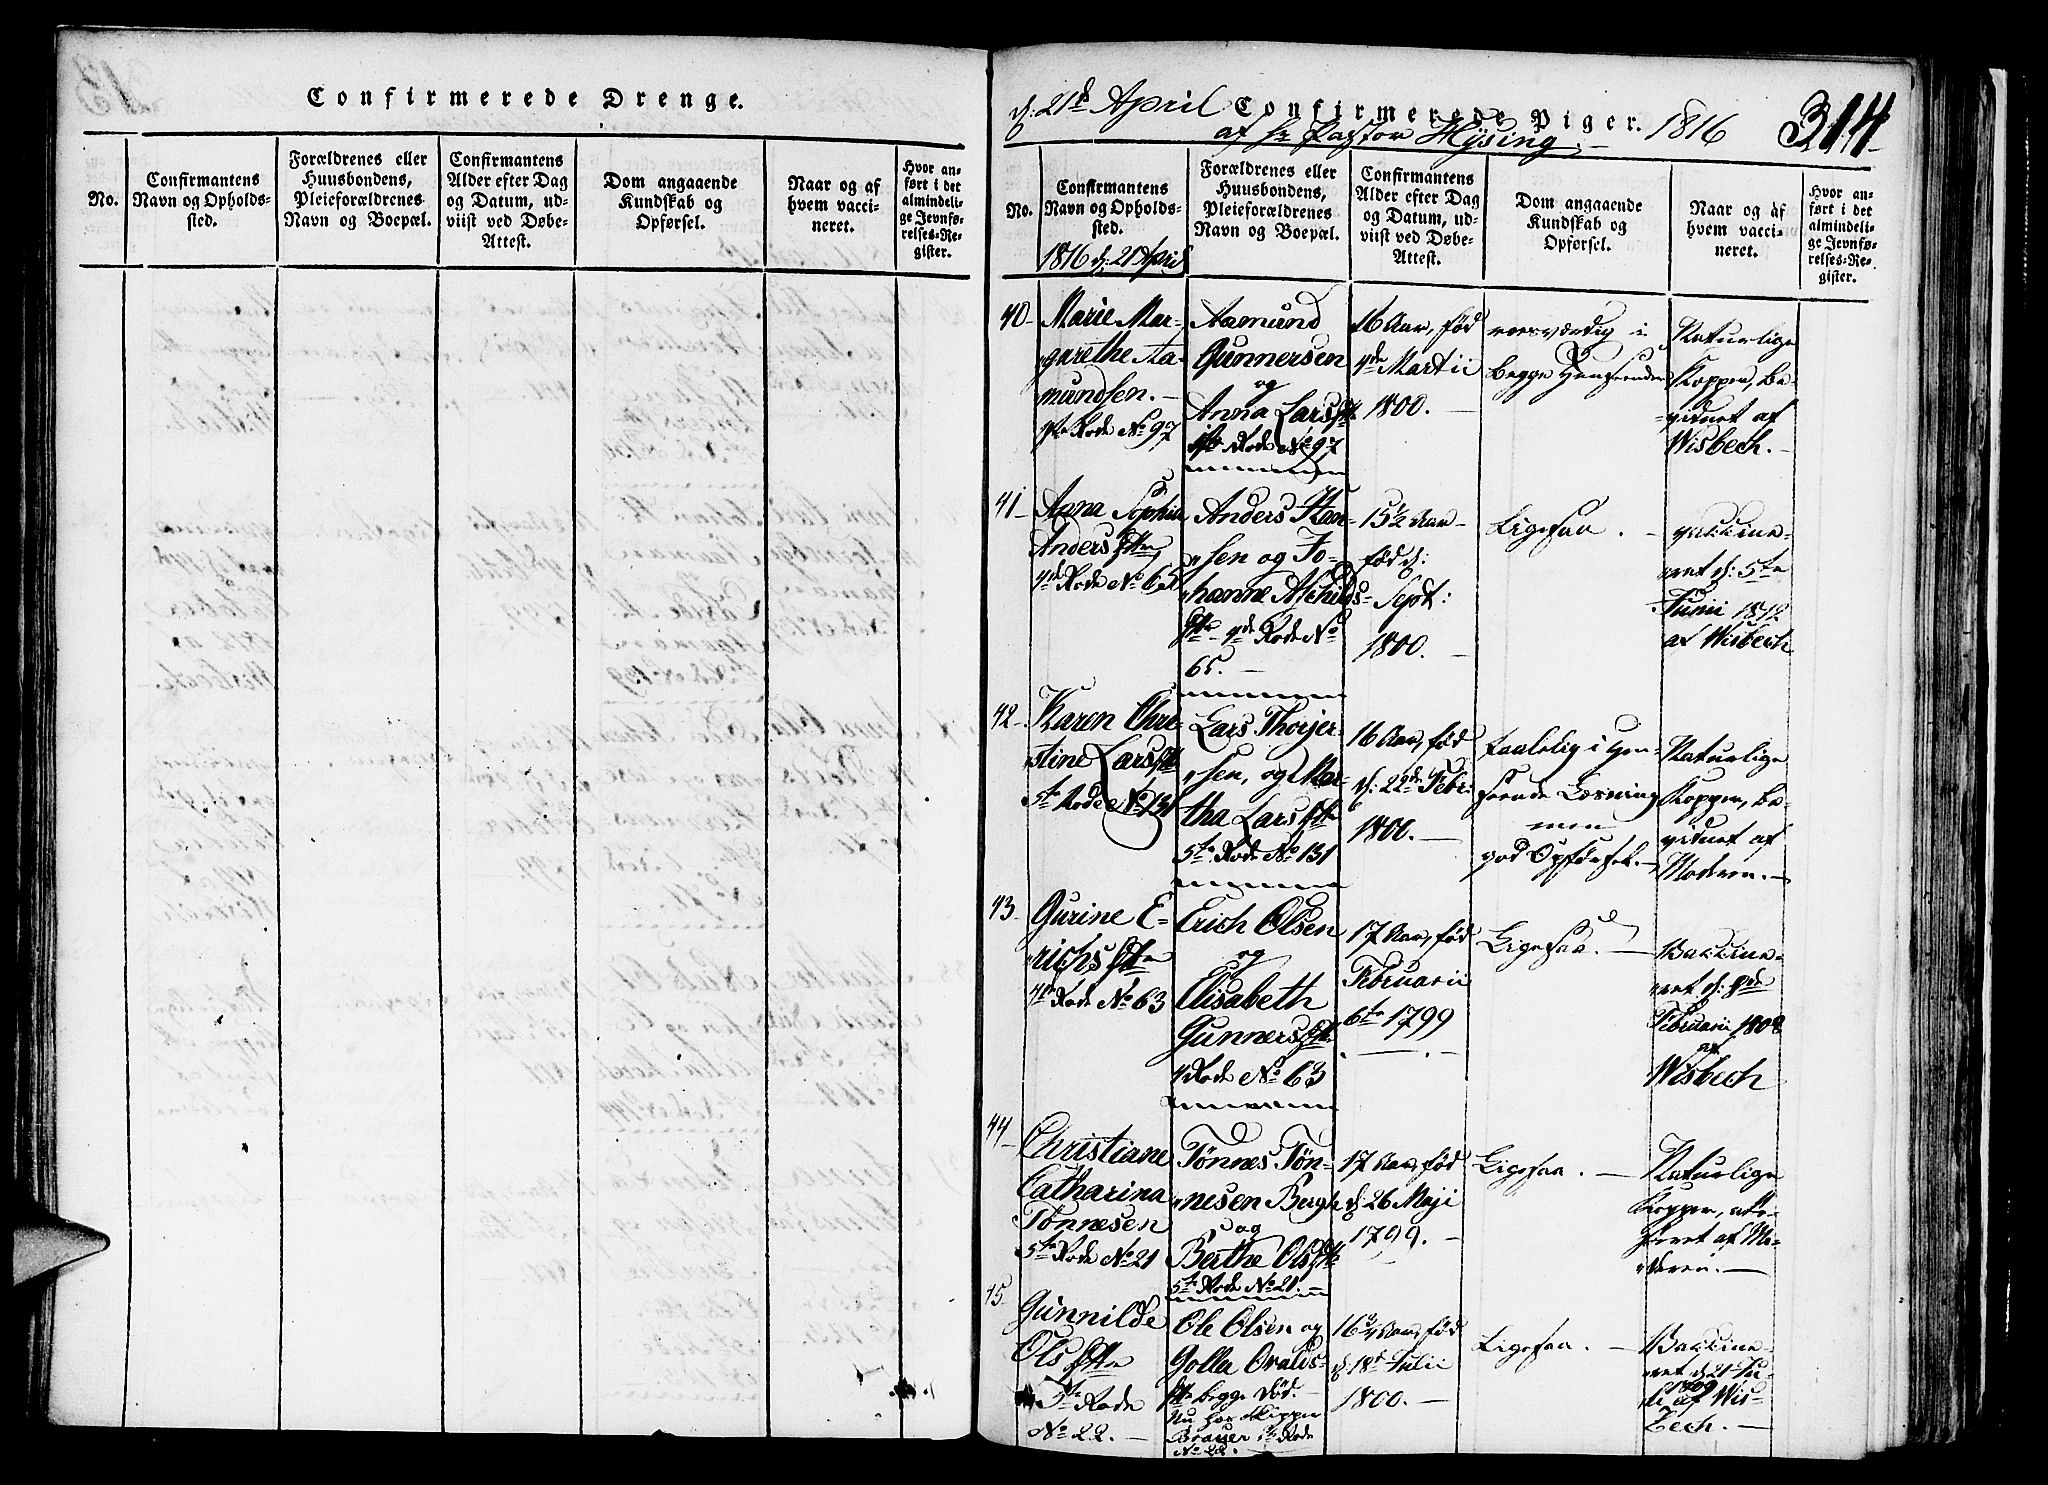 Confirmerede Drenge.
No.
Confirmantens
Navn og Opholds-
sted.
Forældrenes eller
Huusbondens,
Pleieforældrenes
Navn og Boepæl.
Confirmantens
Alder efter Dag
og Datum, ud-
viist ved Døbe-
Attest.
Dom angaaende
Kundskab og
Opførsel.
Naar og af
hvem vacci-
neret.
Hvor an-
ført i det
almindeli-
ge Jevnfø-
relses-Re-
gister.
d: 21d April Confirmerede Piger. 1816 314
af Hr Pastor Hysing. -
No.
Confirmantens
Navn og Opholds-
sted.
1816 d: 21 April
Forældrenes eller
Huusbondens,
Pleieforældrenes
Navn og Boepæl.
Confirmantens
Alder efter Dag
og Datum, ud-
viist ved Døbe-
Attest.
Dom angaaende
Kundskab og
Opførsel.
Naar og af
hvem vacci-
neret.
Hvor an-
ført i det
almindeli-
ge Jevnfø-
relses-Re-
gister.
40
Marie Mar-
garethe Aa-
mundsen. -
Rode No 97
Aamund
Gunnersen
og
Anna Larsdtr
Rode No 97
16 Aar, född
4de Martii
1800. -
begge Henseender
Naturlige
Kopper, be-
vidnet af
Wisbech. -
41
Anna Sophia
Andersdtr
4de Rode No 65
Anders Han-
sen og Jo-
hanne Aschilds-
dtr 4de Rode No
65. -
15½ Aar
fød d:
Sept:
1800. -
Ligesaa. -
vakkine-
ret d: 5te
Junii 1812
af Wisbech
42
Karen Chri-
stine Larsdtr
5te Rode No 131
Lars Thorjer-
sen, og Mar-
tha Larsdtr
5te Rode No 131
16 Aar, fød
d: 22de Febr
1800. -
taalelig i Hen-
seende Læsning
men
god Opførsel. -
Naturlige
Kopper, be-
vidnet af
Moderen. -
43
Gurine E-
richsdtr
4de Rode No 63
Erich Olsen
og
Elisabeth
Gunnersdtr
4 Rode No 63
17 Aar, fød
Februarii
6te 1799
Ligesaa. -
Vakkine-
ret d:
Februarii 1808
af
Wisbech
44
Christiane
Catharina
Tønnesen
5te Rode No 21
Tønnes Tøn-
nesen Bergh
og
Berthe Olsdtr
5te Rode No 21
17 Aar, fød
d 26 Maji
1799. -
Ligesaa. -
Naturlige
Kopper, atte-
steret af Mo-
deren. -
45
Gunnilde
Olsdtr
5te Rode
No 22. -
Ole Olsen og
Golla
dtr begge død. -
Nu hos Skipper
Brauer 5te Rode
No 22. -
Aar, fød
d: 18d Julii
1800. -
Ligesaa. -
Vakkine-
ret d 21 Ju-
li 1809 af Wis-
bech. -